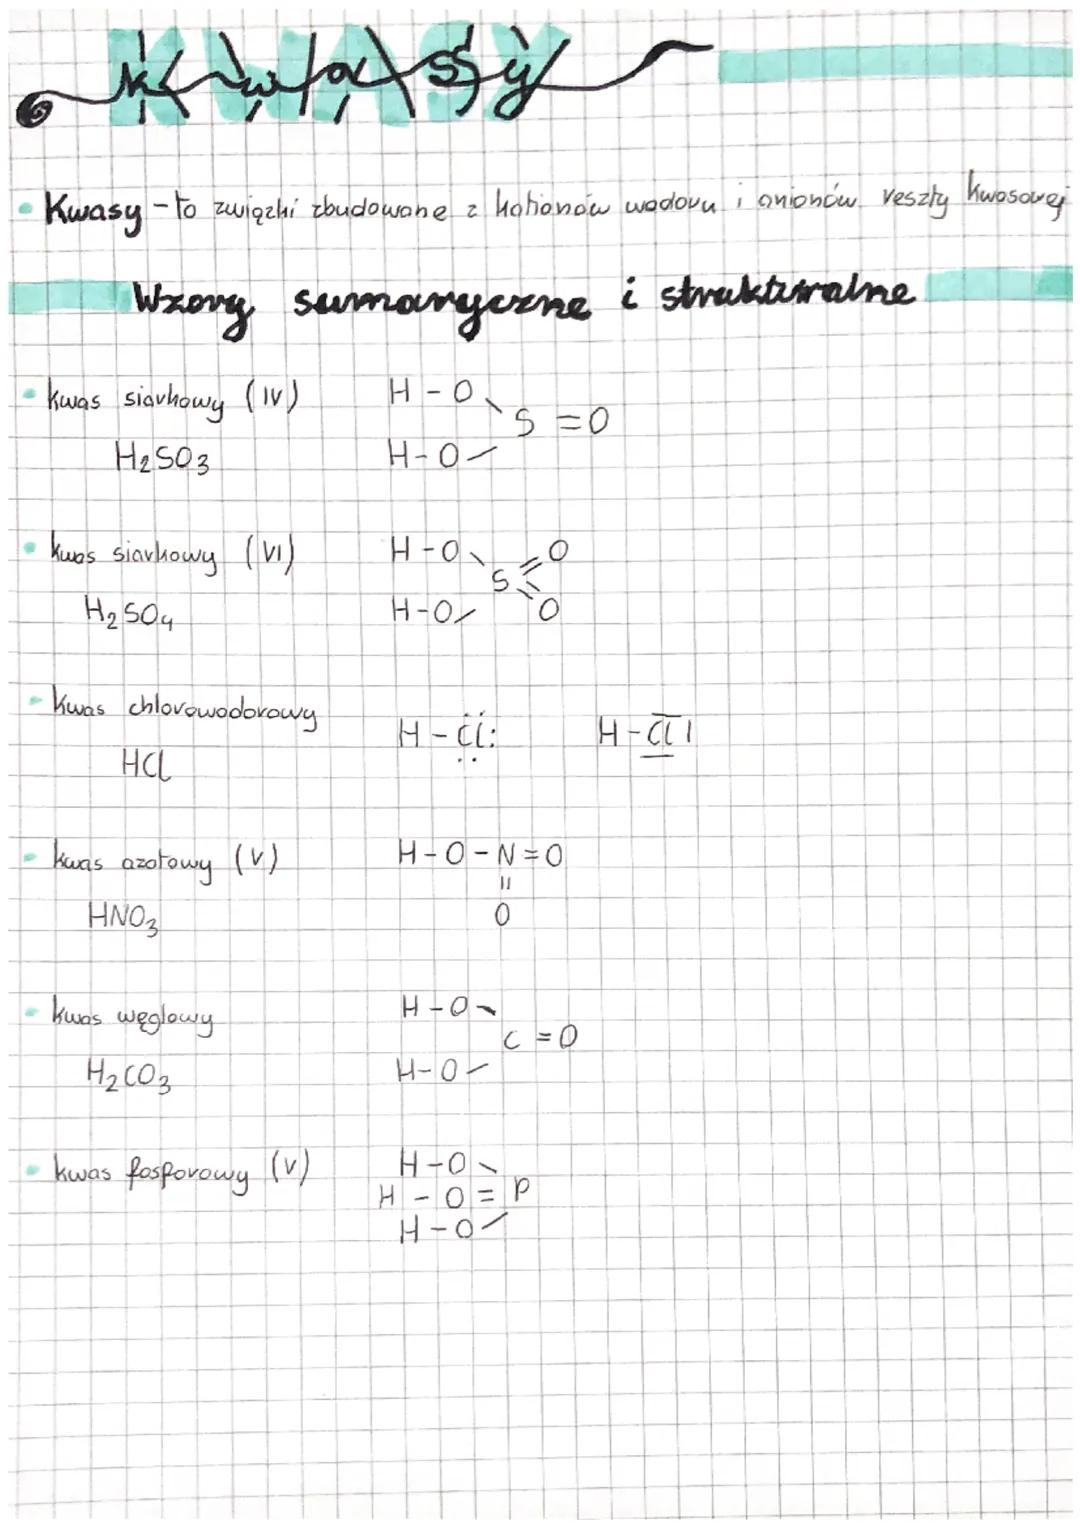 Kwasy
Kwasy - to związki zbudowane z kationów wodoru i anionów reszty kwasowej
Wzory sumaryczne i strukturalne
kwas siarkowy (IV) H - O
S = O
H2SO3 H - O
kwas siarkowy (VI) H - O O
S
H2SO4 H - O O
kwas chlorowodorowy
H - Cl: H - Cl|
HCl
kwas azotowy (V) H - O - N = O
=
HNO3 O
kwas węglowy H - O
C = O
H2CO3 H - O
kwas fosforowy (V) H - O
H - O = P
H - O